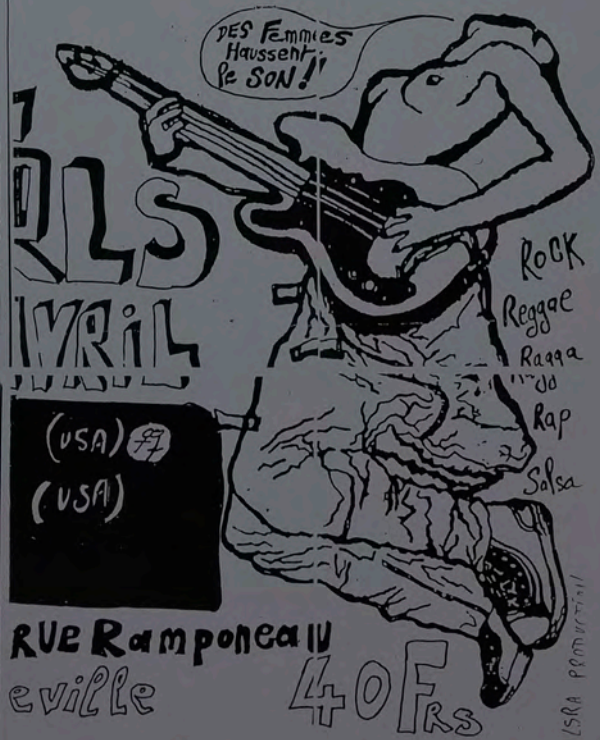 DES Femmes
Haussent
le SON!
RLS
AVRIL
ROCK
Reggae
Ragga
Rap
Salsa
(USA)
(USA)
RUE Ramponeau
eville
40 FRS
LSRA PRODUCTION